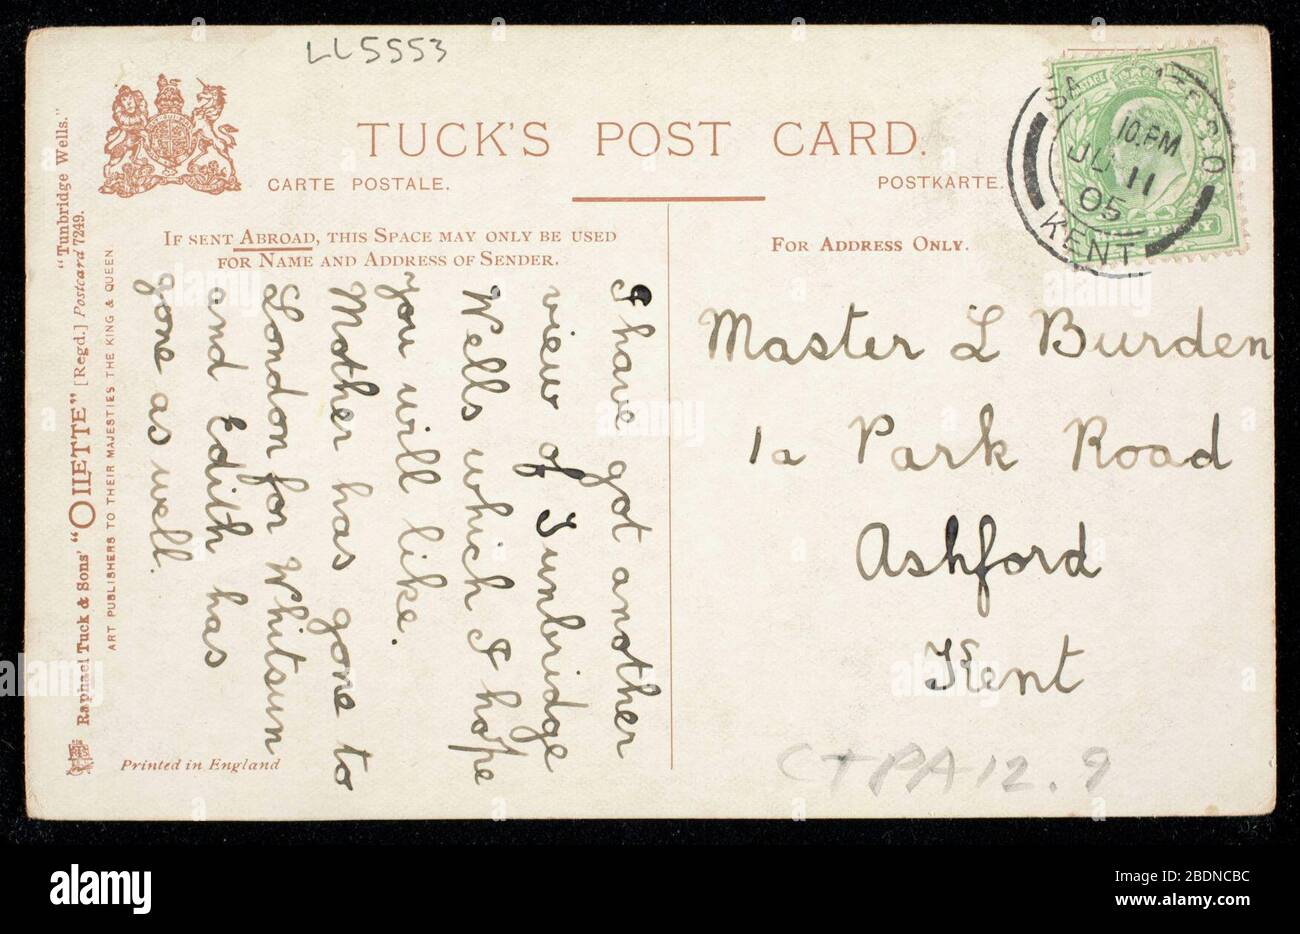 LL5553
TUCK'S POST CARD.
CARTE POSTALE.
POSTKARTE.
IF SENT ABROAD, THIS SPACE MAY ONLY BE USED
FOR NAME AND ADDRESS OF SENDER.
FOR ADDRESS ONLY.
I have got another
view of Tunbridge
Wells which I hope
you will like.
Mother has gone to
London for Whitsun
and Edith has
gone as well.
Master L Burden
1a Park Road
Ashford
Kent
10.PM
JU 11
05
KENT
"Tunbridge Wells."
Raphael Tuck & Sons' "OILETTE" [Regd.] Postcard 7249.
ART PUBLISHERS TO THEIR MAJESTIES THE KING & QUEEN
Printed in England
C+PA12.9
alamy
Image ID: 2BDNCBC
www.alamy.com